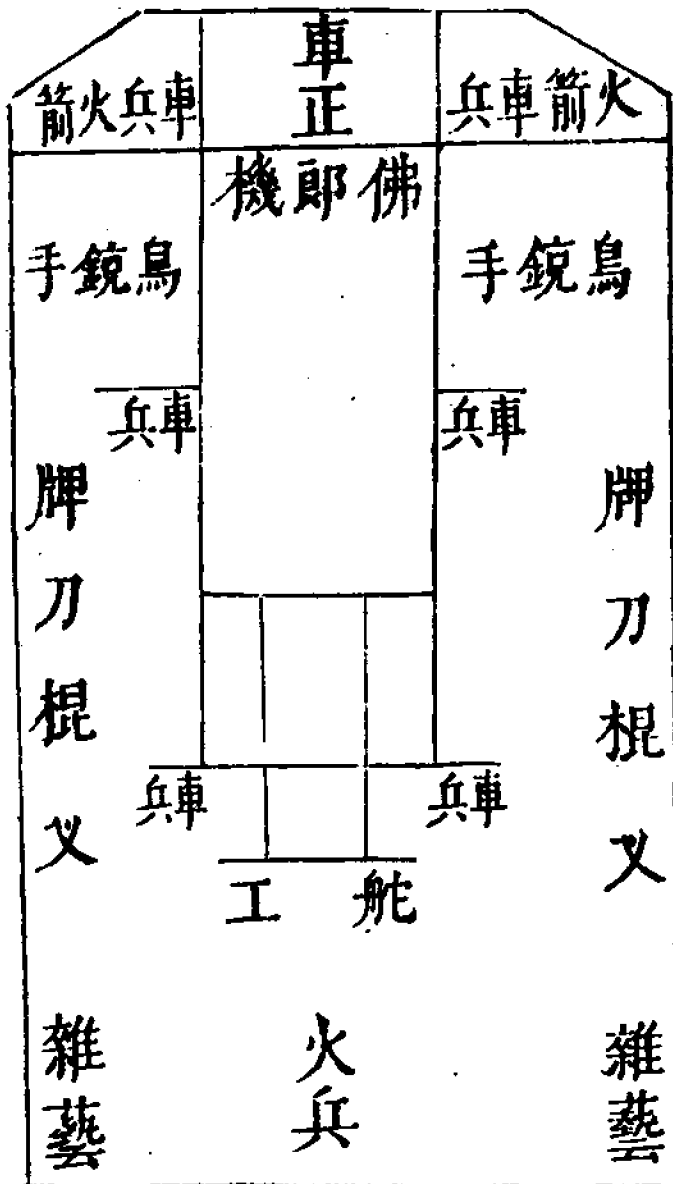 車正
火箭車兵
車兵火箭
佛郎機
鳥銃手
鳥銃手
車兵
車兵
牌刀棍叉
牌刀棍叉
車兵
車兵
舵工
雜藝
火兵
雜藝